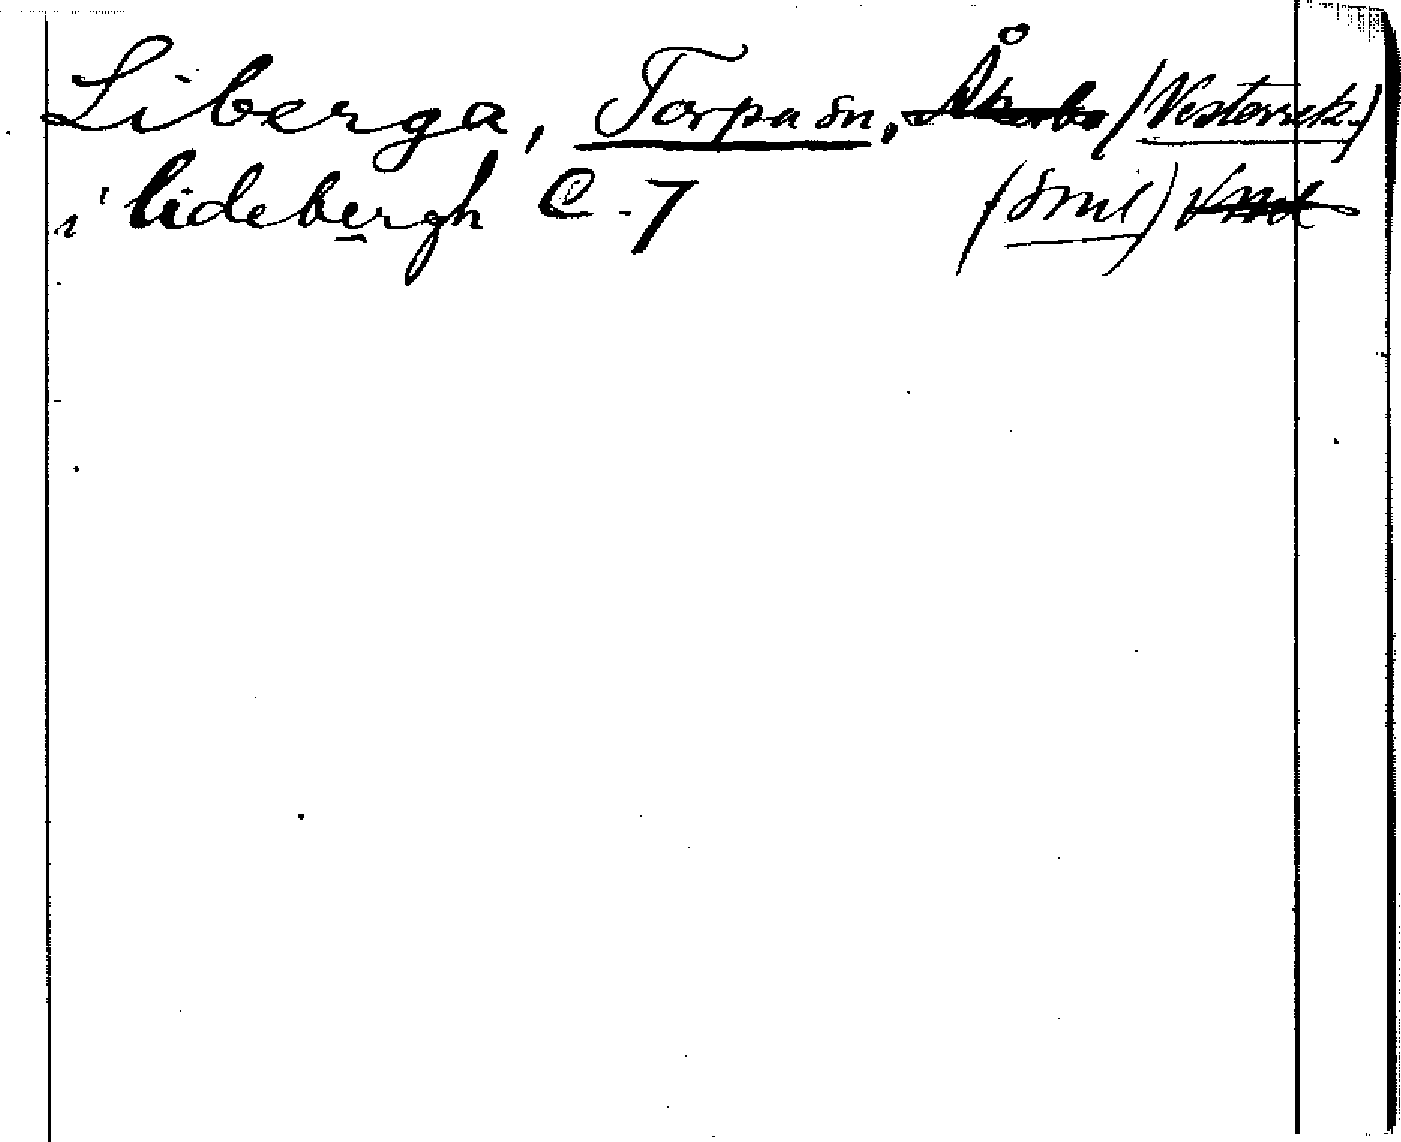 Liberga, Torpa sn, Åkerbo (Vesterrek.)
i lidebergh C. 7 (Sml) Vmd